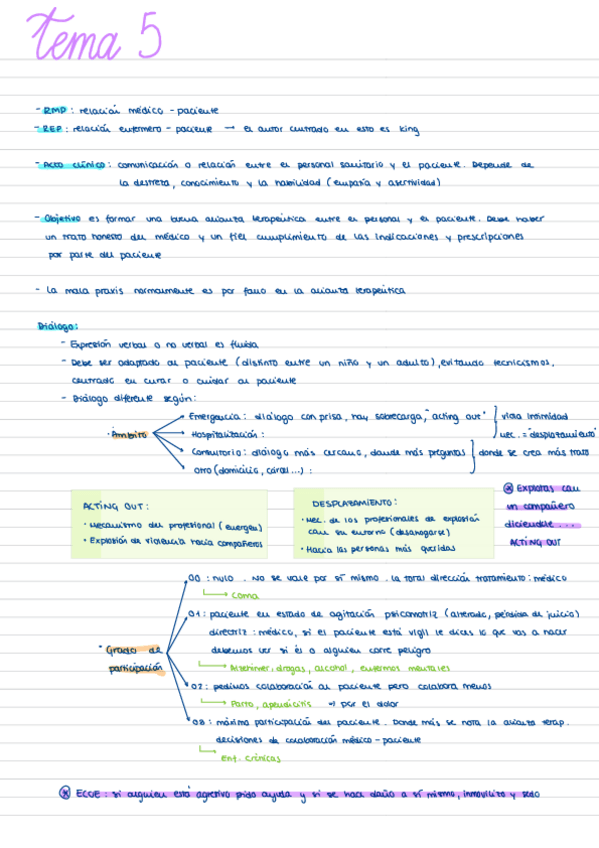 Tema 5
- RMP: relación médico - paciente
- REP: relación enfermero - paciente → El autor centrado en esto es King
- Acto clínico: comunicación o relación entre el personal sanitario y el paciente. Depende de
la destreza, conocimiento y la habilidad (empatía y asertividad)
- Objetivo es formar una buena alianza terapéutica entre el personal y el paciente. Debe haber
un trato honesto del médico y un fiel cumplimiento de las indicaciones y prescripciones
por parte del paciente
- La mala praxis normalmente es por fallo en la alianza terapéutica
Diálogo:
- Expresión verbal o no verbal es fluida
- Debe ser adaptado al paciente (distinto entre un niño y un adulto), evitando tecnicismos,
centrado en curar o cuidar al paciente
- Diálogo diferente según:
· Ámbito
Emergencia: diálogo con prisa, hay sobrecarga, "acting out"
Hospitalización:
viola intimidad
mec. = "desplazamiento"
Consultorio: diálogo más cercano, donde más preguntas
donde se crea más trato
Otro (domicilio, cárcel...):
ACTING OUT:
· Mecanismo del profesional (emergen)
· Explosión de violencia hacia compañeros
DESPLAZAMIENTO:
· Mec. de los profesionales de explosión
con su entorno (desahogarse)
· Hacia las personas más queridas
* Explotas con
un compañero
diciendole ...
ACTING OUT
· Grado de
participación
00: nulo. No se vale por sí mismo. La total dirección tratamiento: médico
Coma
01: paciente en estado de agitación psicomotriz (alterado, pérdida de juicio)
directriz: médico, si el paciente está vigil le dices lo que vas a hacer
debemos ver si él o alguien corre peligro
Alzhimer, drogas, alcohol, enfermos mentales
02: pedimos colaboración al paciente pero colabora menos
Parto, apendicitis → por el dolor
03: máxima participación del paciente. Donde más se nota la alianza terap.
decisiones de colaboración médico - paciente
enf. crónicas
* ECOE: si alguien está agresivo pido ayuda y si se hace daño a sí mismo, inmovilizo y sedo